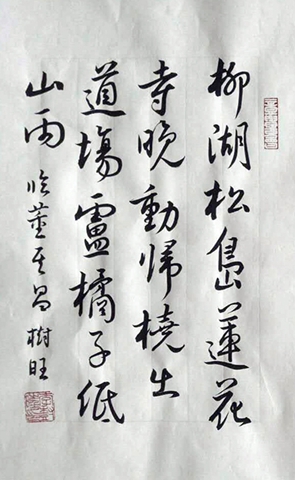 柳湖松島蓮花
寺晚動歸橈出
道場盧橘子低
山雨
臨董其昌樹旺